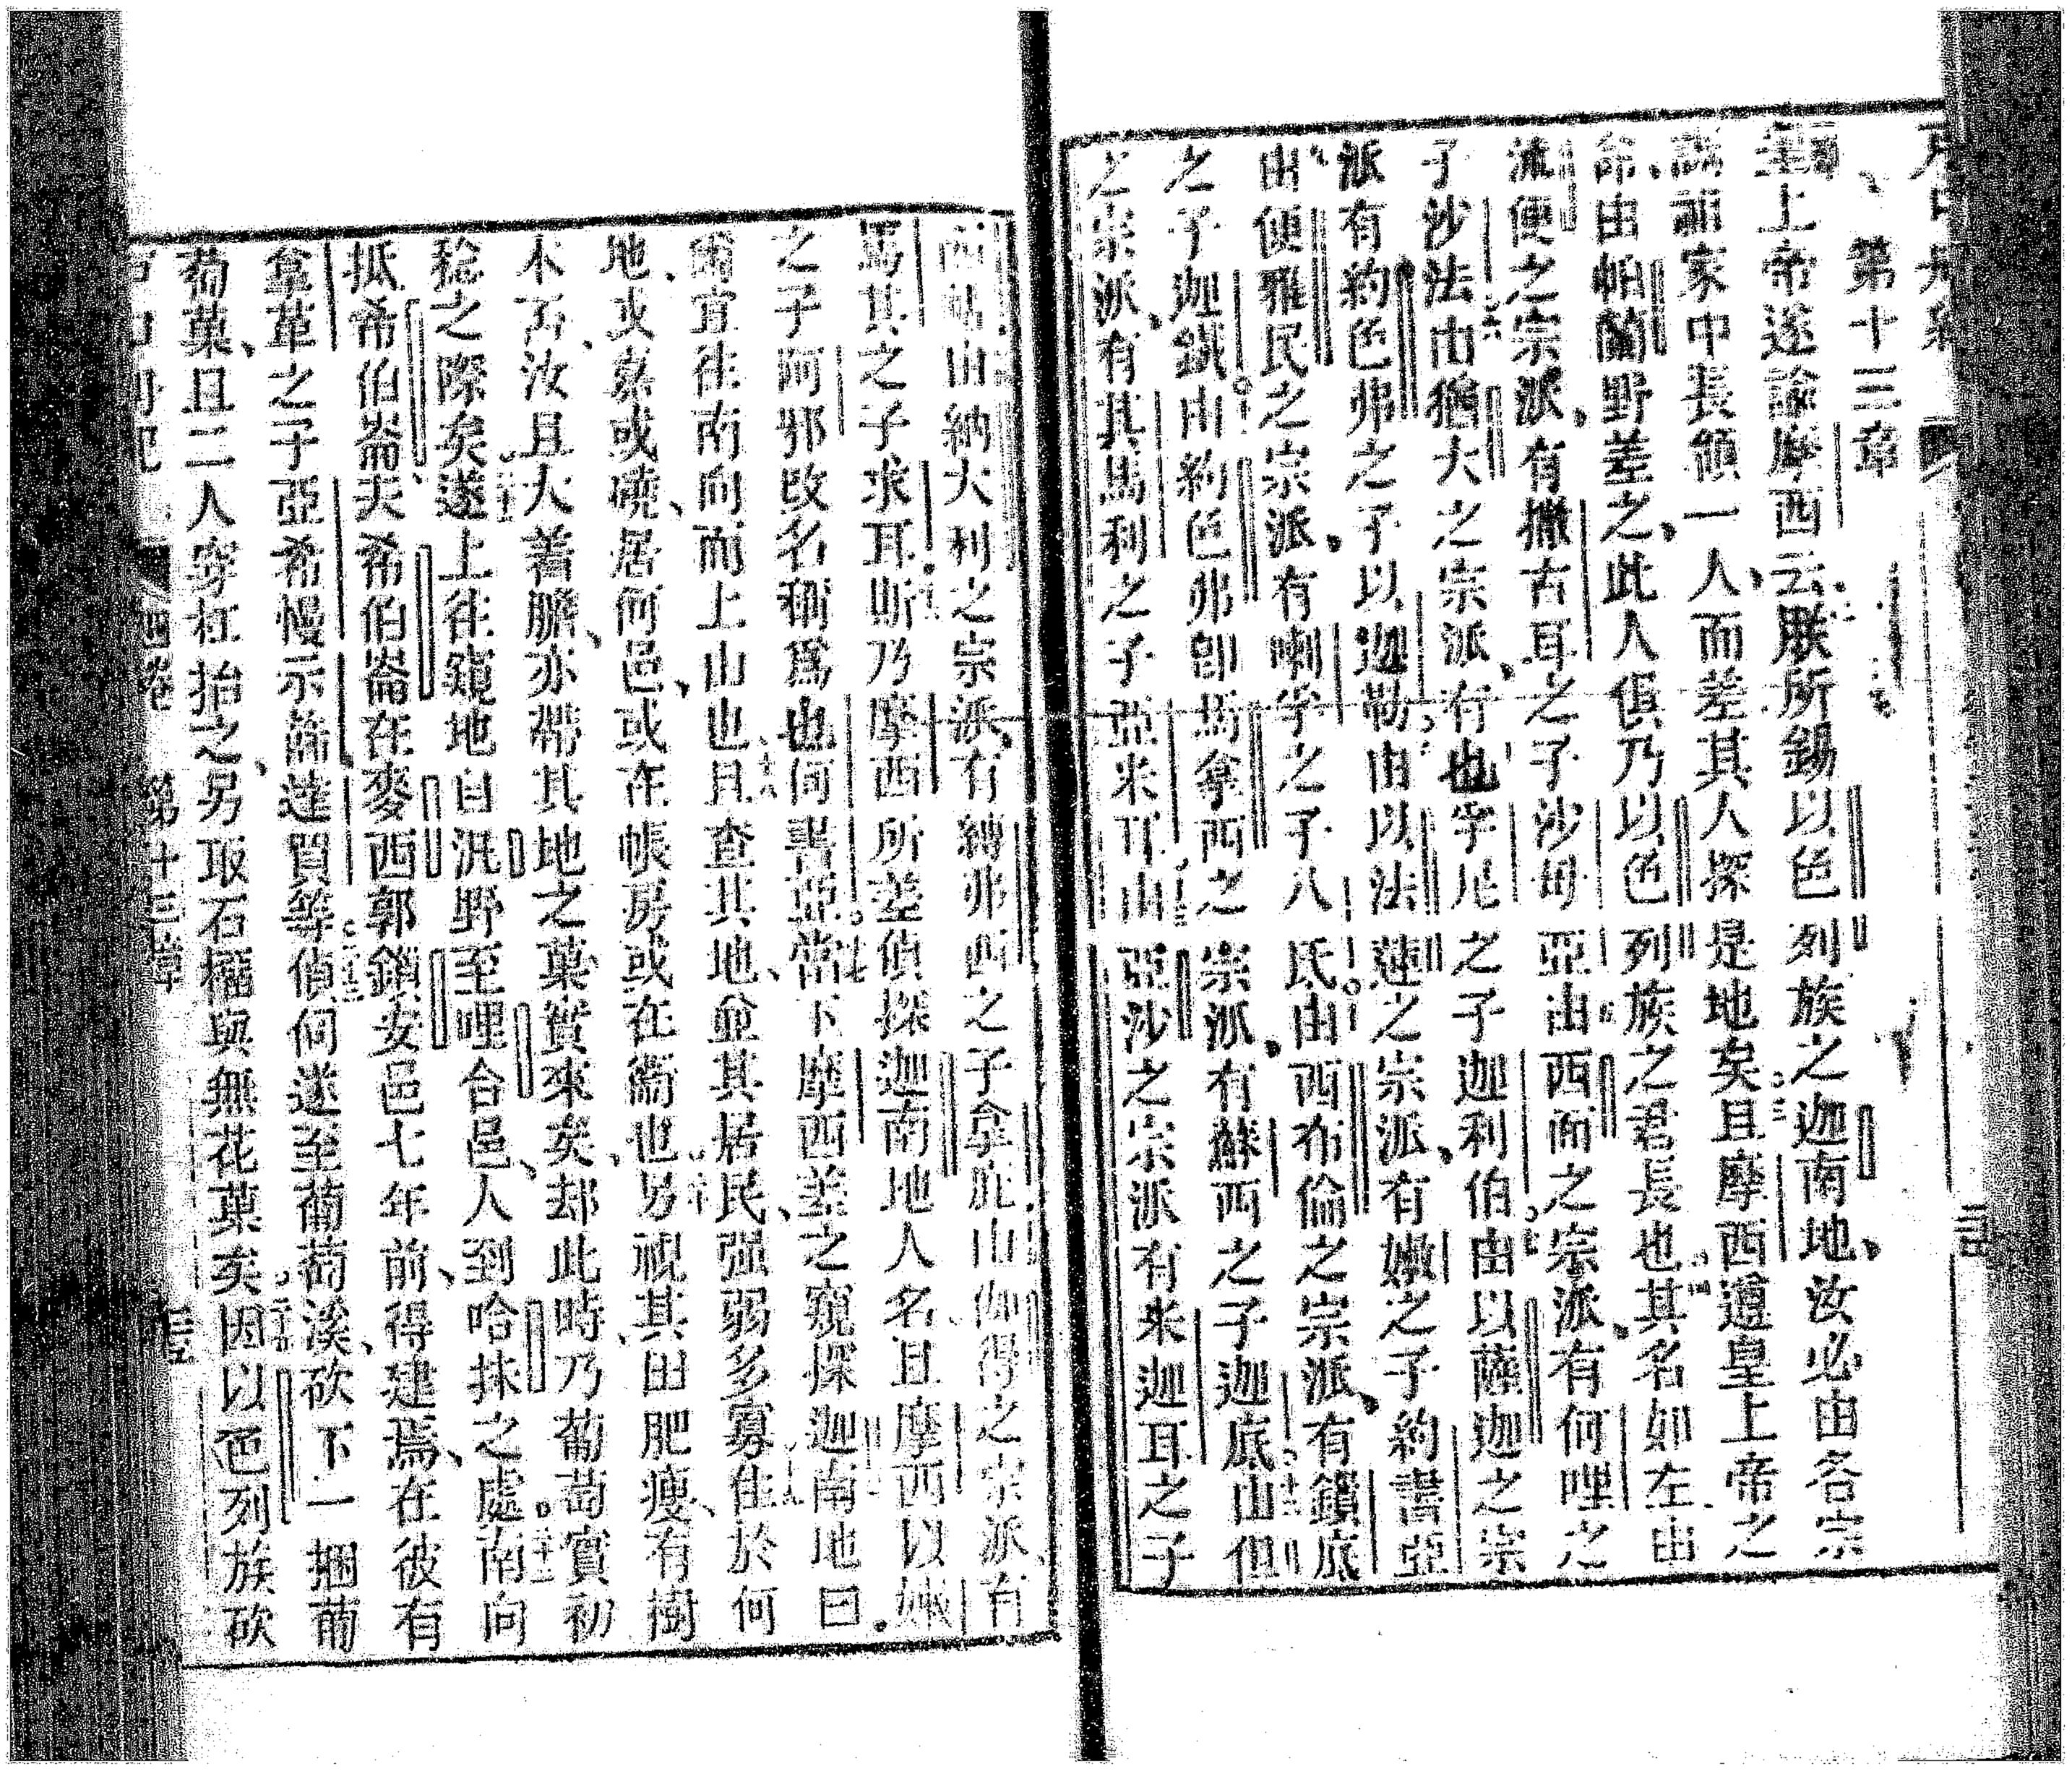 第十三章
皇上帝遂諭摩西云朕所錫以色列族之迦南地汝必由各宗
家中長領一人而差其人探是地矣且摩西遵皇上帝之
命由帕蘭野差之此人俱乃以色列族之君長也其名如左由
流便之宗派有撒古耳之子沙母亞由西面之宗派有何哩之
子沙法由猶大之宗派有也孚尼之子迦利伯由以薩迦之宗
派有約色弗之子以迦勒由以法蓮之宗派有嫩之子約書亞
由便雅民之宗派有喇孚之子八氏由西布倫之宗派有鎖底
之子迦鐵由約色弗卽馬拿西之宗派有蘇西之子迦底由但
之宗派有其馬利之子亞米耳由亞沙之宗派有米迦耳之子
西帖由納大利之宗派有縛弗西之子拿庇由伽得之宗派有
馬其之子求耳斯乃摩西所差偵探迦南地人名且摩西以嫩
之子阿郣改名稱爲也何書亞當下摩西差之窺探迦南地曰
爾宜往南向而上山也且查其地並其居民强弱多寡住於何
地或嘉或磽居何邑或在帳房或在衞也另視其田肥瘦有樹
木否汝且大着膽亦帶其地之菓實來矣却此時乃葡萄實初
稔之際矣遂上往窺地自汎野至哩合邑人到哈抹之處南向
抵希伯崙夫希伯崙在麥西郭鎖安邑七年前得建焉在彼有
拿革之子亞希慢示篩達買等偵伺遂至葡萄溪砍下一捆葡
萄菓且二人穿杠抬之另取石榴與無花菓矣因以色列族砍
四卷 第十三章